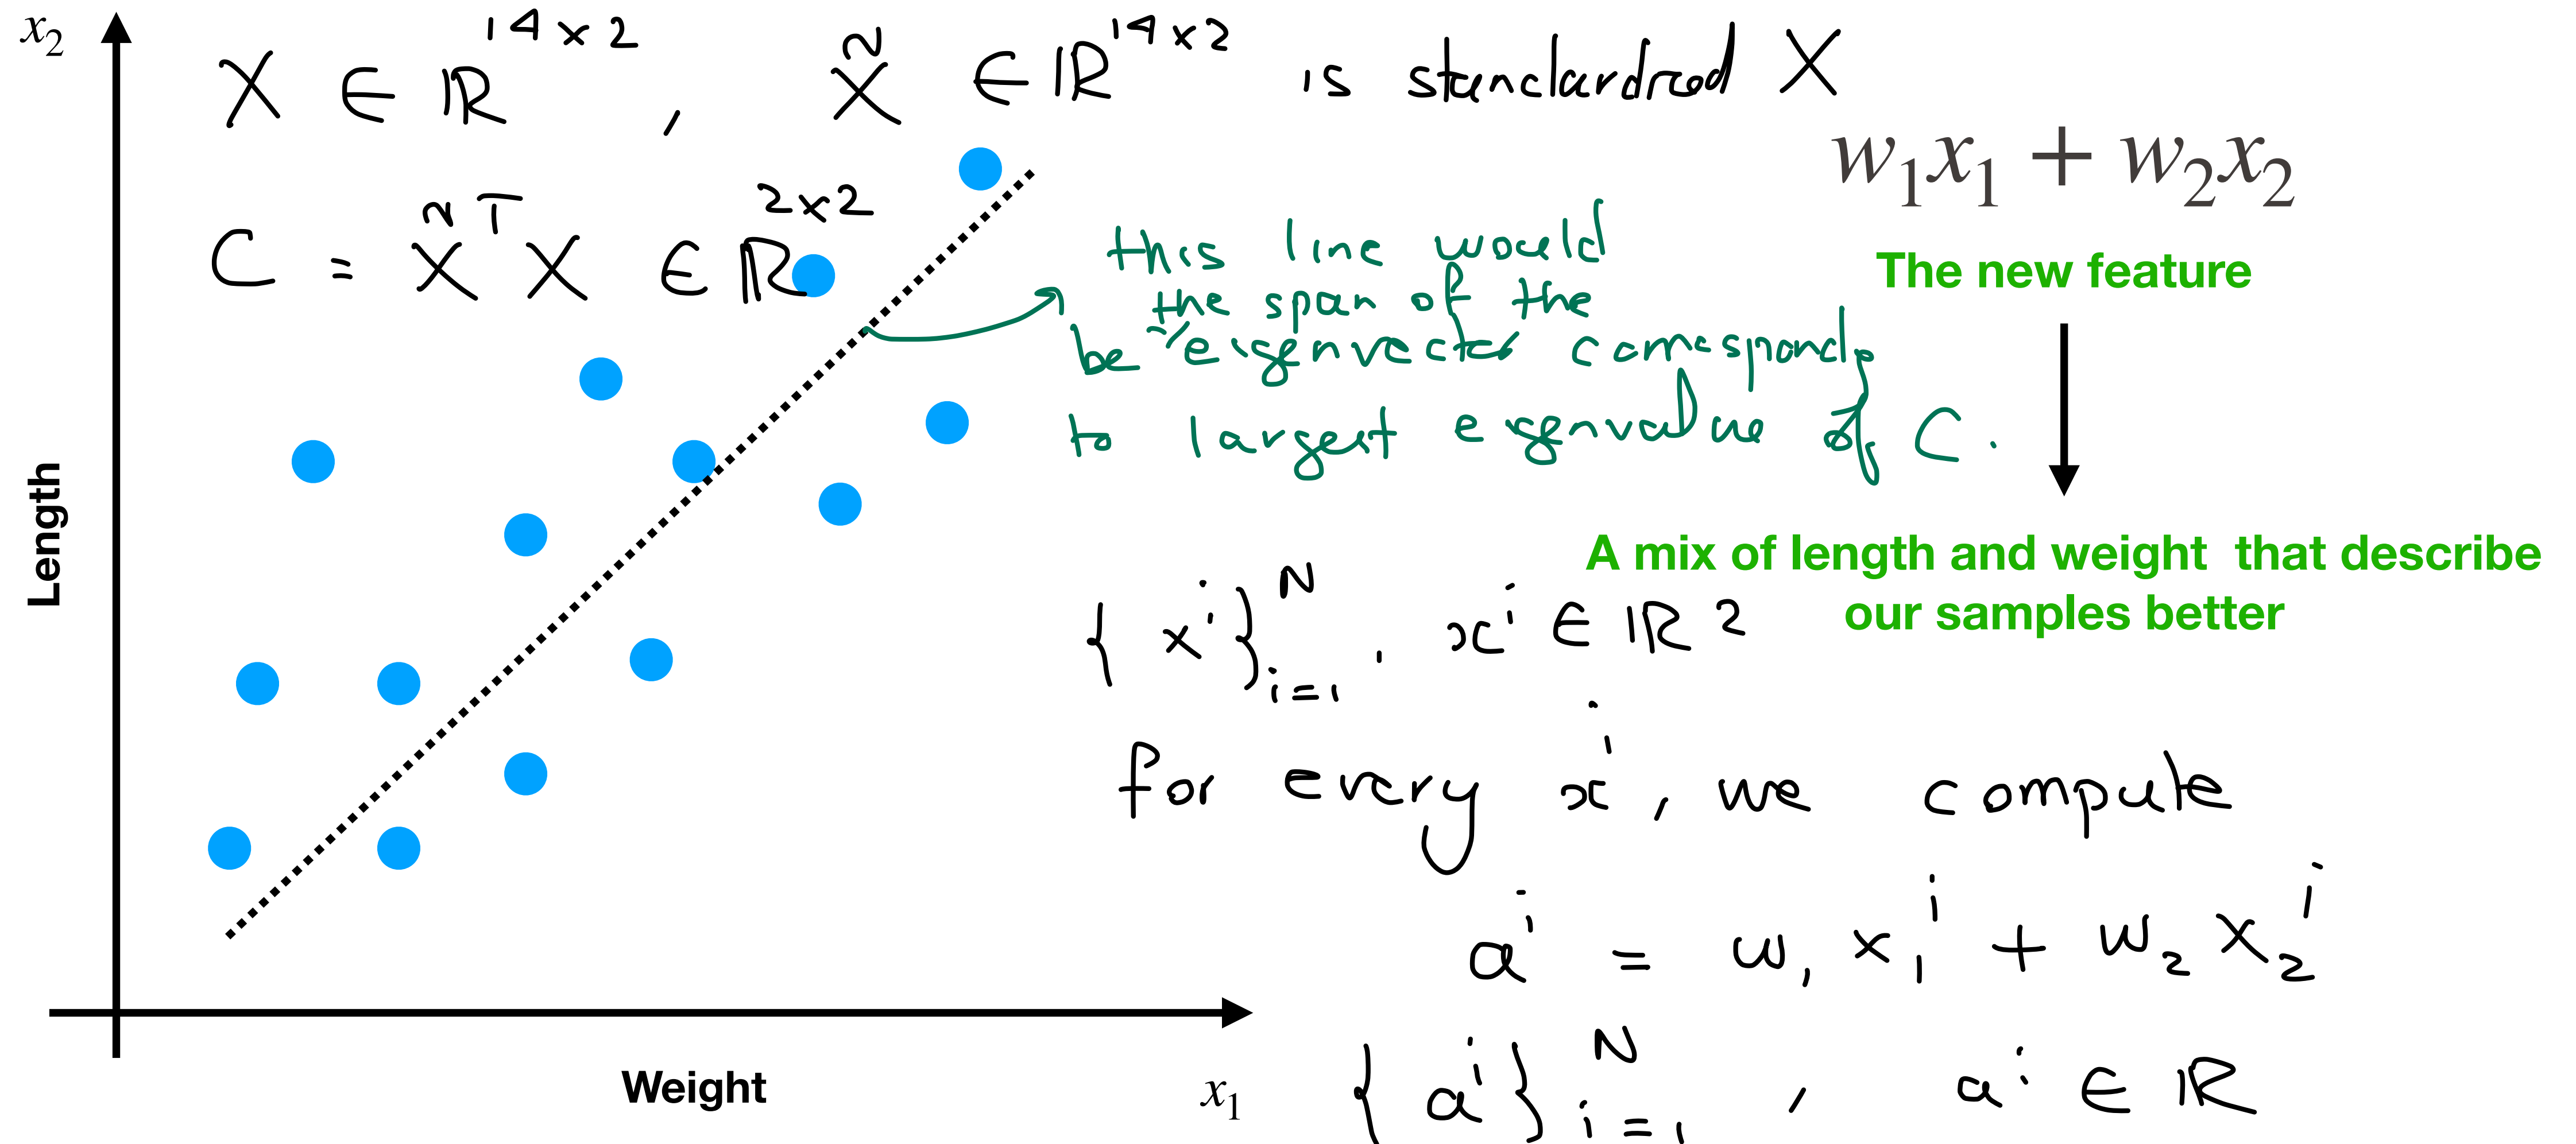 x₂
X ∈ ℝ^{14×2} , X̃ ∈ ℝ^{14×2} is standardized X
w₁x₁ + w₂x₂
C = X̃ᵀ X ∈ ℝ^{2×2}
The new feature
this line would
the span of the
be eigenvector corresponds
to largest eigenvalue of C.
A mix of length and weight that describe
our samples better
{ xⁱ }ᴺᵢ₌₁ , xⁱ ∈ ℝ²
for every xⁱ, we compute
aⁱ = w₁ x₁ⁱ + w₂ x₂ⁱ
{ aⁱ }ᴺᵢ₌₁ , aⁱ ∈ ℝ
Length
Weight
x₁